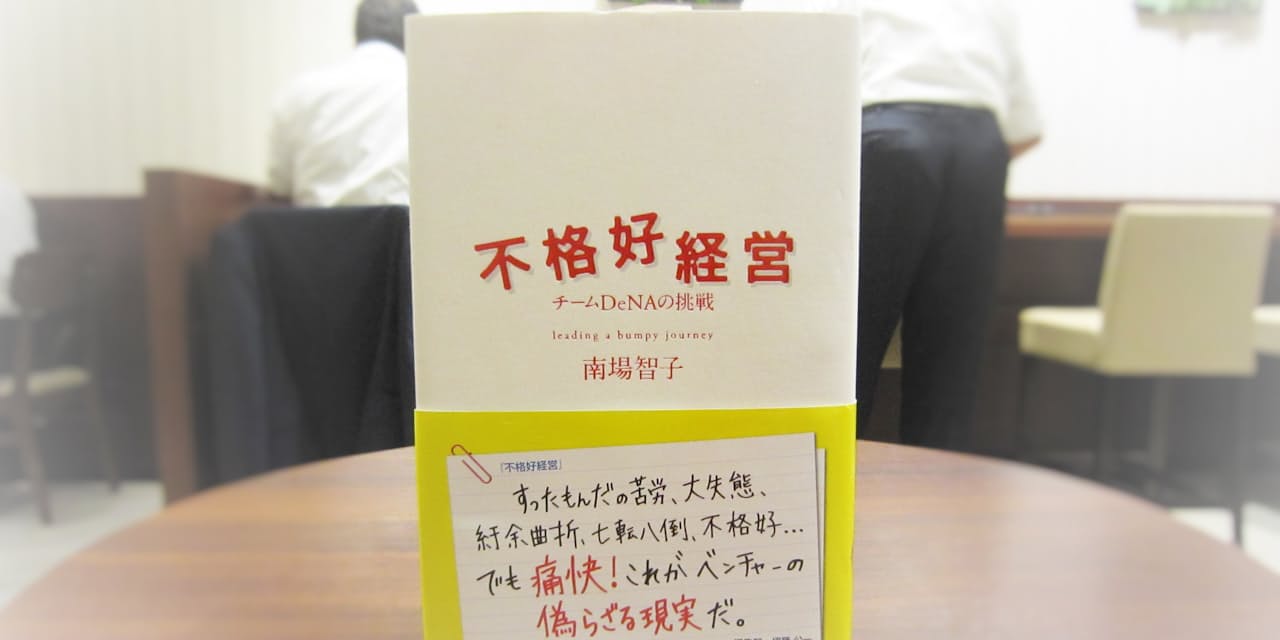 不格好経営
チームDeNAの挑戦
leading a bumpy journey
南場智子
「不格好経営」
すったもんだの苦労、大失態、
紆余曲折、七転八倒、不格好…
でも痛快！これがベンチャーの
偽らざる現実だ。